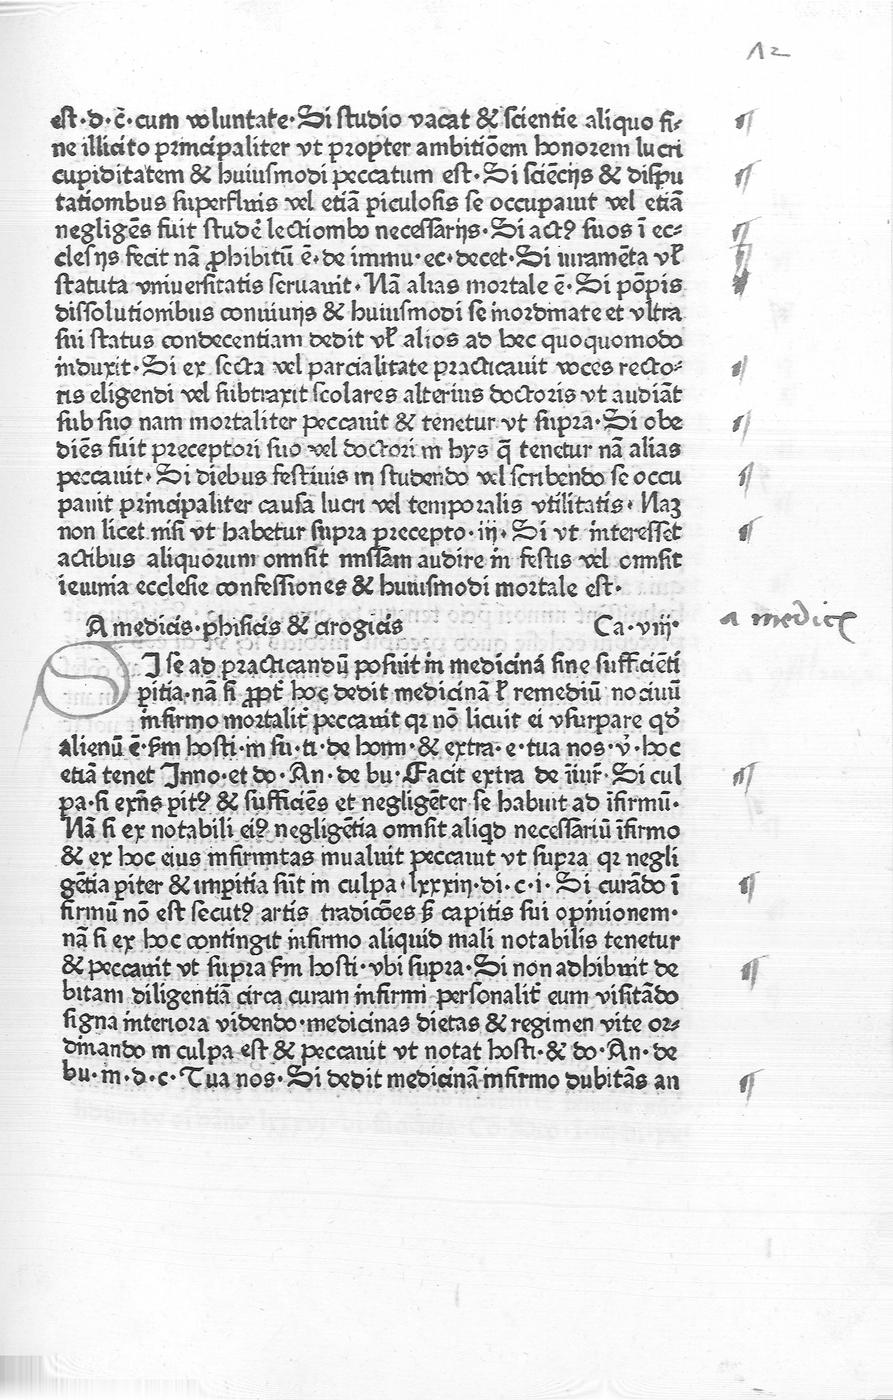 12
est·d·c̄·cum voluntate·Si studio vacat & scientie aliquo fi⸗
ne illicito principaliter vt propter ambitiōem honorem lucri
cupiditatem & huiusmodi peccatum est·Si sciēcijs & dispu
tationibus superfluis vel etiā piculosis se occupauit vel etiā
negligēs fuit studē lectionibꝰ necessarijs·Si actꝰ suos ī ec⸗
clesijs fecit nā ꝓhibitū ē·de immu·ec·decet·Si iuramēta vł
statuta vniuersitatis seruauit·Nā alias mortale ē·Si pōpis
dissolutionibus conuiuijs & huiusmodi se inordinate et vltra
sui status condecentiam dedit vł alios ad hec quoquomodo
induxit·Si ex secta vel parcialitate practicauit voces recto⸗
ris eligendi vel subtraxit scolares alterius doctoris vt audiāt
sub suo nam mortaliter peccauit & tenetur vt supra·Si obe
diēs fuit preceptori suo vel doctori in hys q̄ tenetur nā alias
peccauit·Si diebus festiuis in studendo vel scribendo se occu
pauit principaliter causa lucri vel temporalis vtilitatis·Naʒ
non licet nisi vt habetur supra precepto·iij·Si vt interesset
actibus aliquorum omisit missam audire in festis vel omisit
ieiunia ecclesie confessiones & huiusmodi mortale est·
A medicis·phisicis & cirogicis Ca·viij·
a medic
SI se ad practicandū posuit in medicinā sine sufficiēti
pitia·nā si ꝓpt̄ hoc dedit medicinam ł remediū nociuū
infirmo mortalit̄ peccauit qꝛ nō licuit ei vsurpare qđ
alienū ē·fm hosti·in su·ti·de homi·& extra·e·tua nos·v̄·hoc
etiā tenet Inno·et do·An·de bu·Facit extra de iiur̄·Si cul
pa·si exn̄s pitꝰ & sufficiēs et negligēter se habuit ad īfirmū·
Nā si ex notabili eiꝰ negligētia omisit aliqd necessariū īfirmo
& ex hoc eius infirmitas inualuit peccauit vt supra qꝛ negli
gētia piter & impitia sūt in culpa·lxxxiij·di·c·i·Si curādo ī
firmū nō est secutꝰ artis tradicōes ß capitis sui opinionem·
nā si ex hoc contingit infirmo aliquid mali notabilis tenetur
& peccauit vt supra fm hosti·vbi supra·Si non adhibuit de
bitam diligentiā circa curam infirmi personalit̄ eum visitādo
signa interiora videndo·medicinas dietas & regimen vite or⸗
dinando in culpa est & peccauit vt notat hosti·& do·An·de
bu·in·d·c·Tua nos·Si dedit medicinā infirmo dubitās an